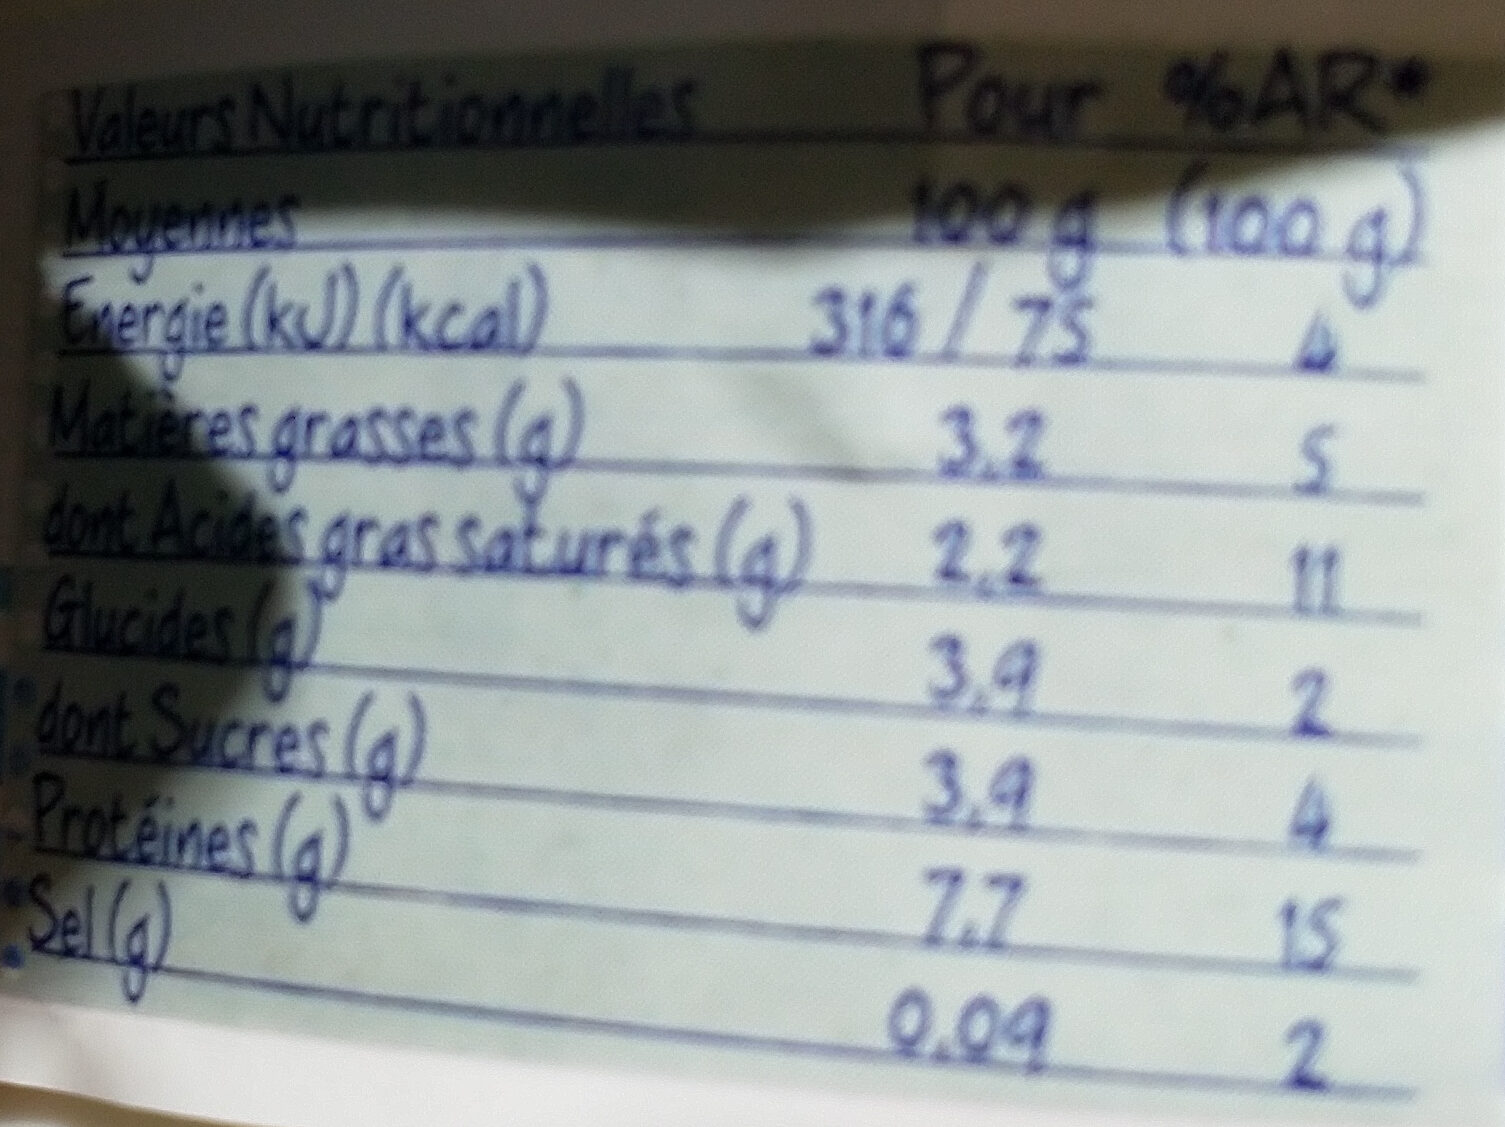 Valeurs Nutritionnelles Pour %AR*
Moyennes 100 g (100 g)
Energie (kJ) (kcal) 316 / 75 4
Matières grasses (g) 3,2 5
dont Acides gras saturés (g) 2,2 11
Glucides (g) 3,9 2
dont Sucres (g) 3,9 4
Protéines (g) 7,7 15
Sel (g) 0,09 2